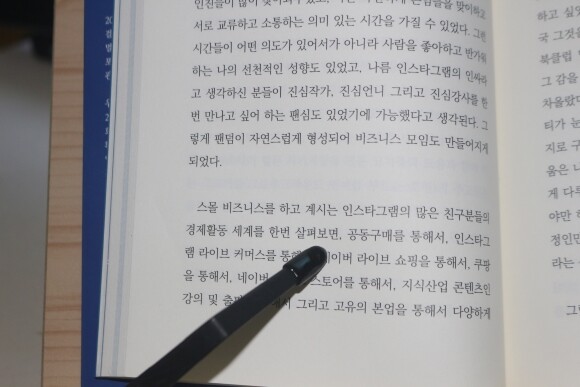 서로 교류하고 소통하는 의미 있는 시간을 가질 수 있었다. 그런
시간들이 어떤 의도가 있어서가 아니라 사람을 좋아하고 반가워
하는 나의 선천적인 성향도 있었고, 나름 인스타그램의 인싸라
고 생각하신 분들이 진심작가, 진심언니 그리고 진심강사를 한
번 만나고 싶어 하는 팬심도 있었기에 가능했다고 생각된다. 그
렇게 팬덤이 자연스럽게 형성되어 비즈니스 모임도 만들어지게
되었다.
스몰 비즈니스를 하고 계시는 인스타그램의 많은 친구분들의
경제활동 세계를 한번 살펴보면, 공동구매를 통해서, 인스타그
램 라이브 커머스를 라이브 쇼핑을 통해서, 쿠팡
을 통해서, 네이버 통해서, 지식산업 콘텐츠인
강의 및 그리고 고유의 본업을 통해서 다양하게
하고 싶
국 그것을
북클럽
그 감을
차올랐다
티가 눈
지로 구
옳은 나
게 다
야만 하
정인
라는